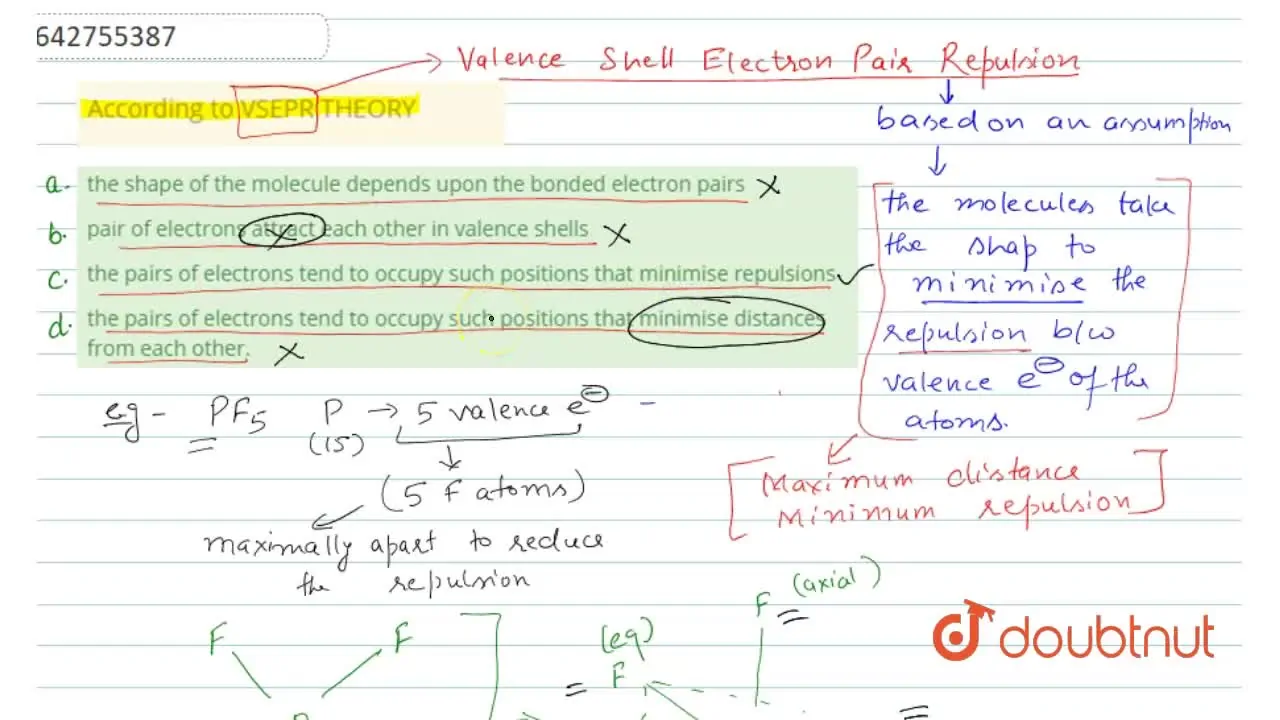 642755387
Valence Shell Electron Pair Repulsion
According to VSEPR THEORY
based on an assumption
a. the shape of the molecule depends upon the bonded electron pairs
b. pair of electrons attract each other in valence shells
c. the pairs of electrons tend to occupy such positions that minimise repulsions
d. the pairs of electrons tend to occupy such positions that minimise distances
from each other.
the molecules take
the shap to
minimise the
repulsion b/w
valence e⊖ of the
atoms.
eg - PF5 P → 5 valence e⊖ -
(15)
(5 F atoms)
maximally apart to reduce
the repulsion
Maximum distance
Minimum repulsion
F (axial)
F F (eq)
F
doubtnut